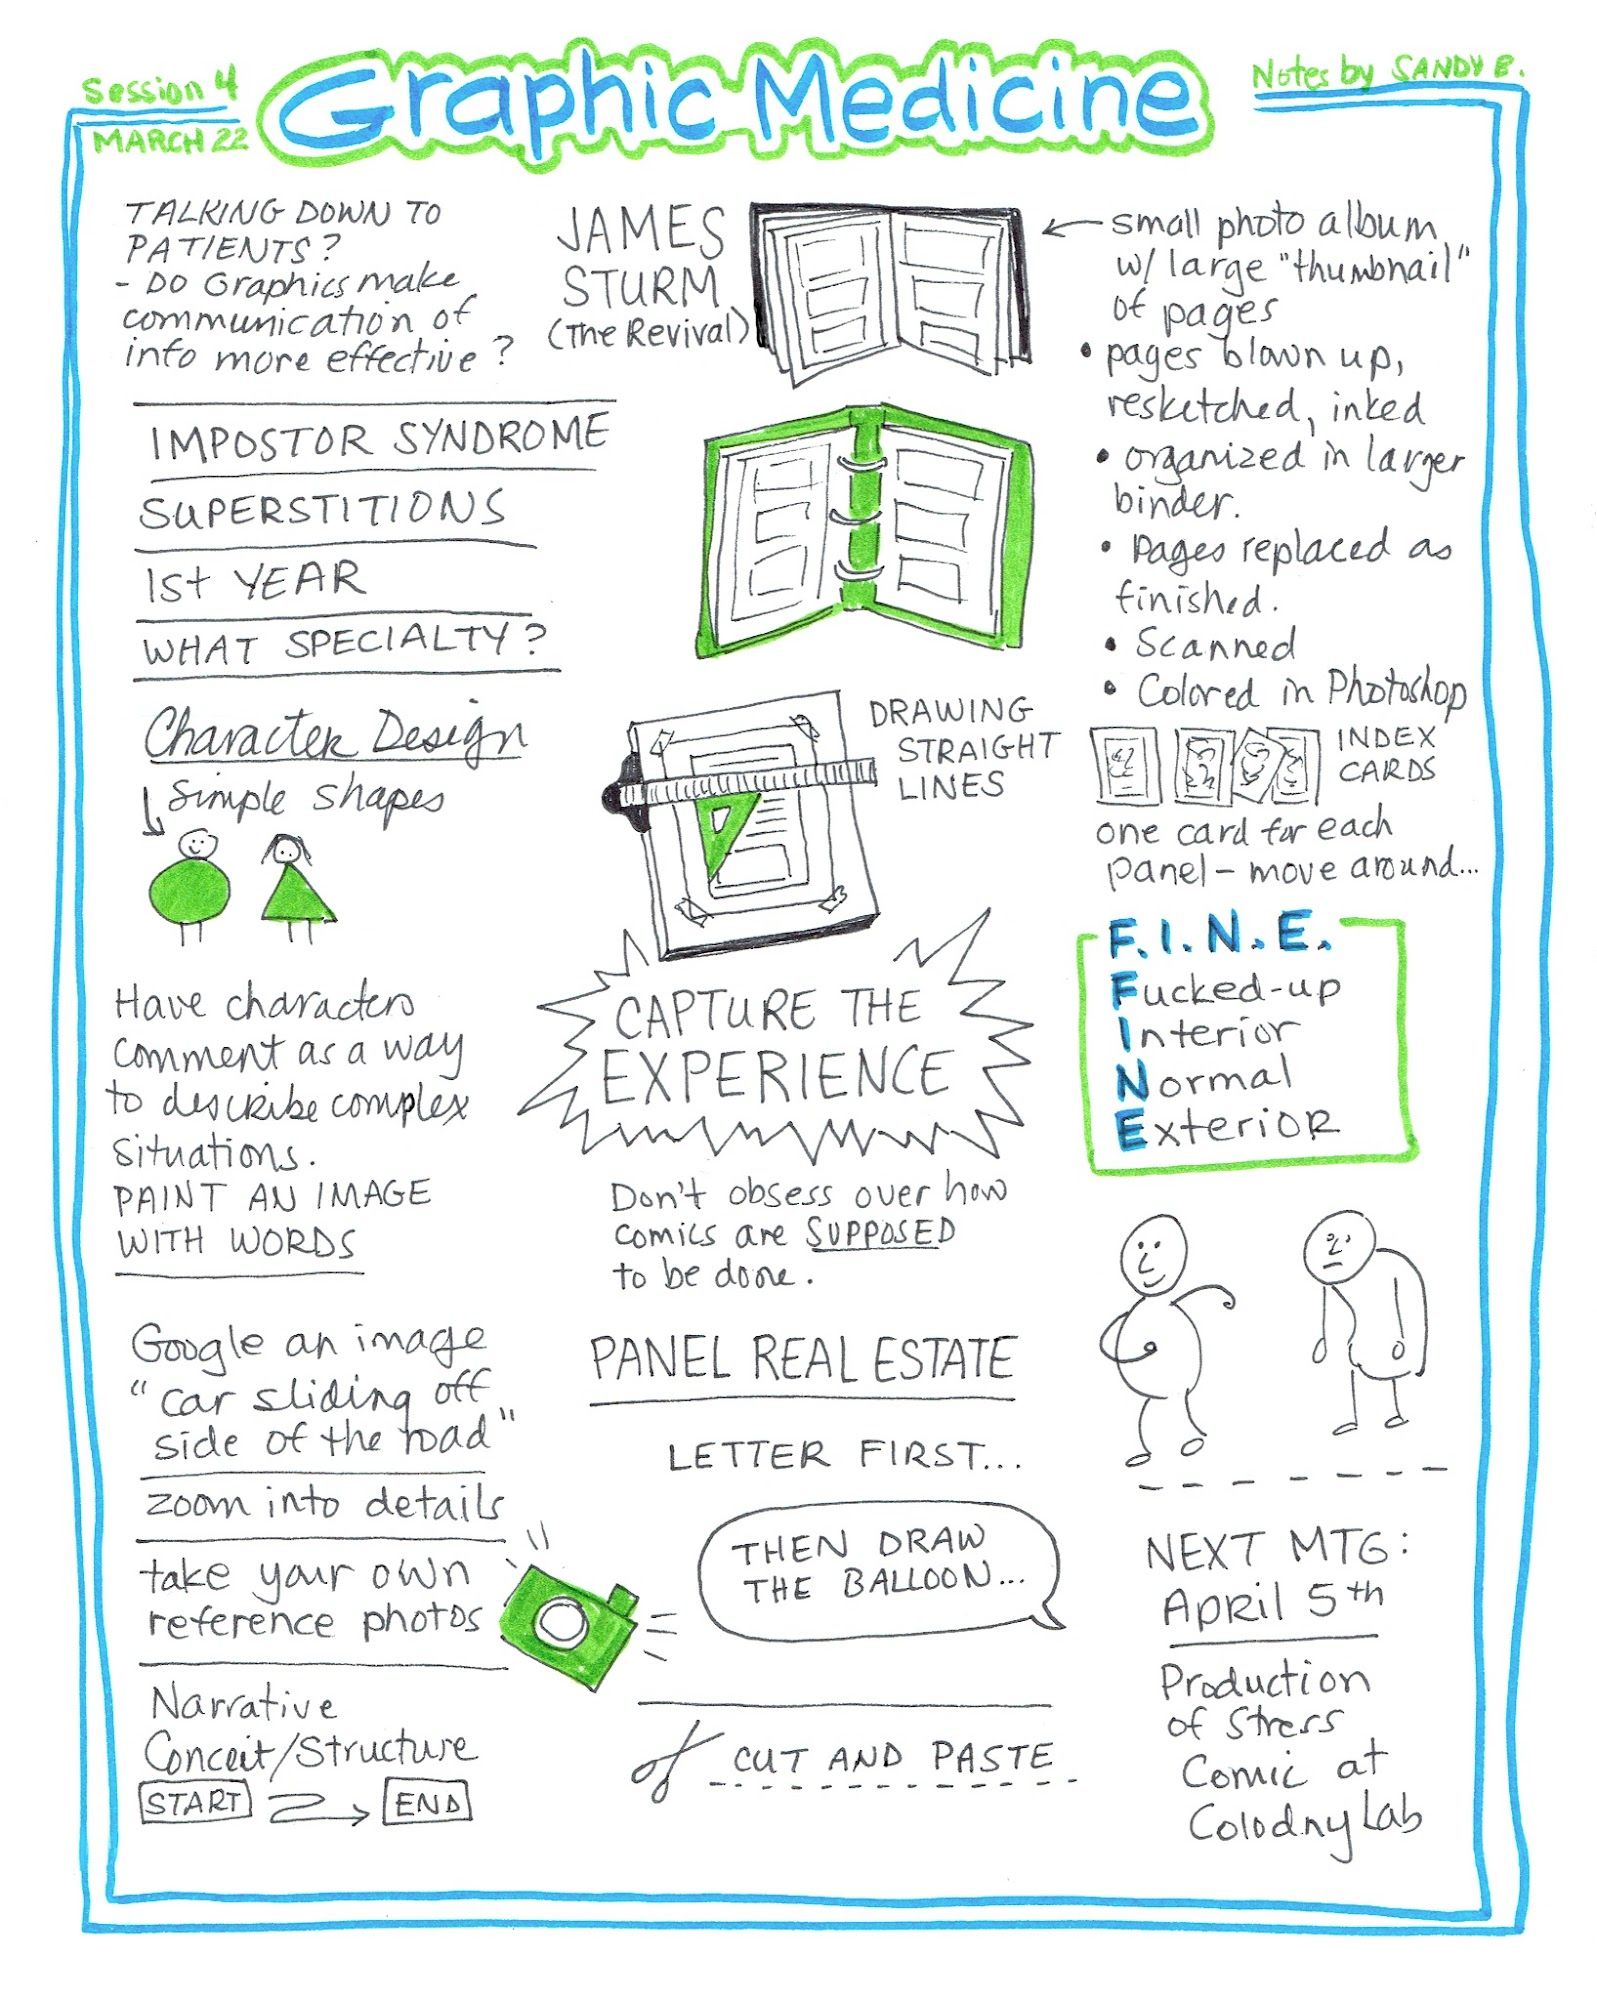 Session 4
MARCH 22
Graphic Medicine
Notes by SANDY E.
TALKING DOWN TO
PATIENTS?
- Do Graphics make
communication of
info more effective?
IMPOSTOR SYNDROME
SUPERSTITIONS
1st YEAR
WHAT SPECIALTY?
Character Design
Simple shapes
Have characters
comment as a way
to describe complex
situations.
PAINT AN IMAGE
WITH WORDS
Google an image
"car sliding off
side of the road"
zoom into details
take your own
reference photos
Narrative
Conceit/Structure
START
END
JAMES
STURM
(The Revival)
DRAWING
STRAIGHT
LINES
CAPTURE THE
EXPERIENCE
Don't obsess over how
comics are SUPPOSED
to be done.
PANEL REAL ESTATE
LETTER FIRST...
THEN DRAW
THE BALLOON...
CUT AND PASTE
small photo album
w/ large "thumbnail"
of pages
• pages blown up,
resketched, inked
• organized in larger
binder.
• Pages replaced as
finished.
• Scanned
• Colored in Photoshop
INDEX
CARDS
one card for each
panel - move around...
F.I.N.E.
Fucked-up
Interior
Normal
Exterior
NEXT MTG:
April 5th
Production
of Stress
Comic at
Colodny Lab